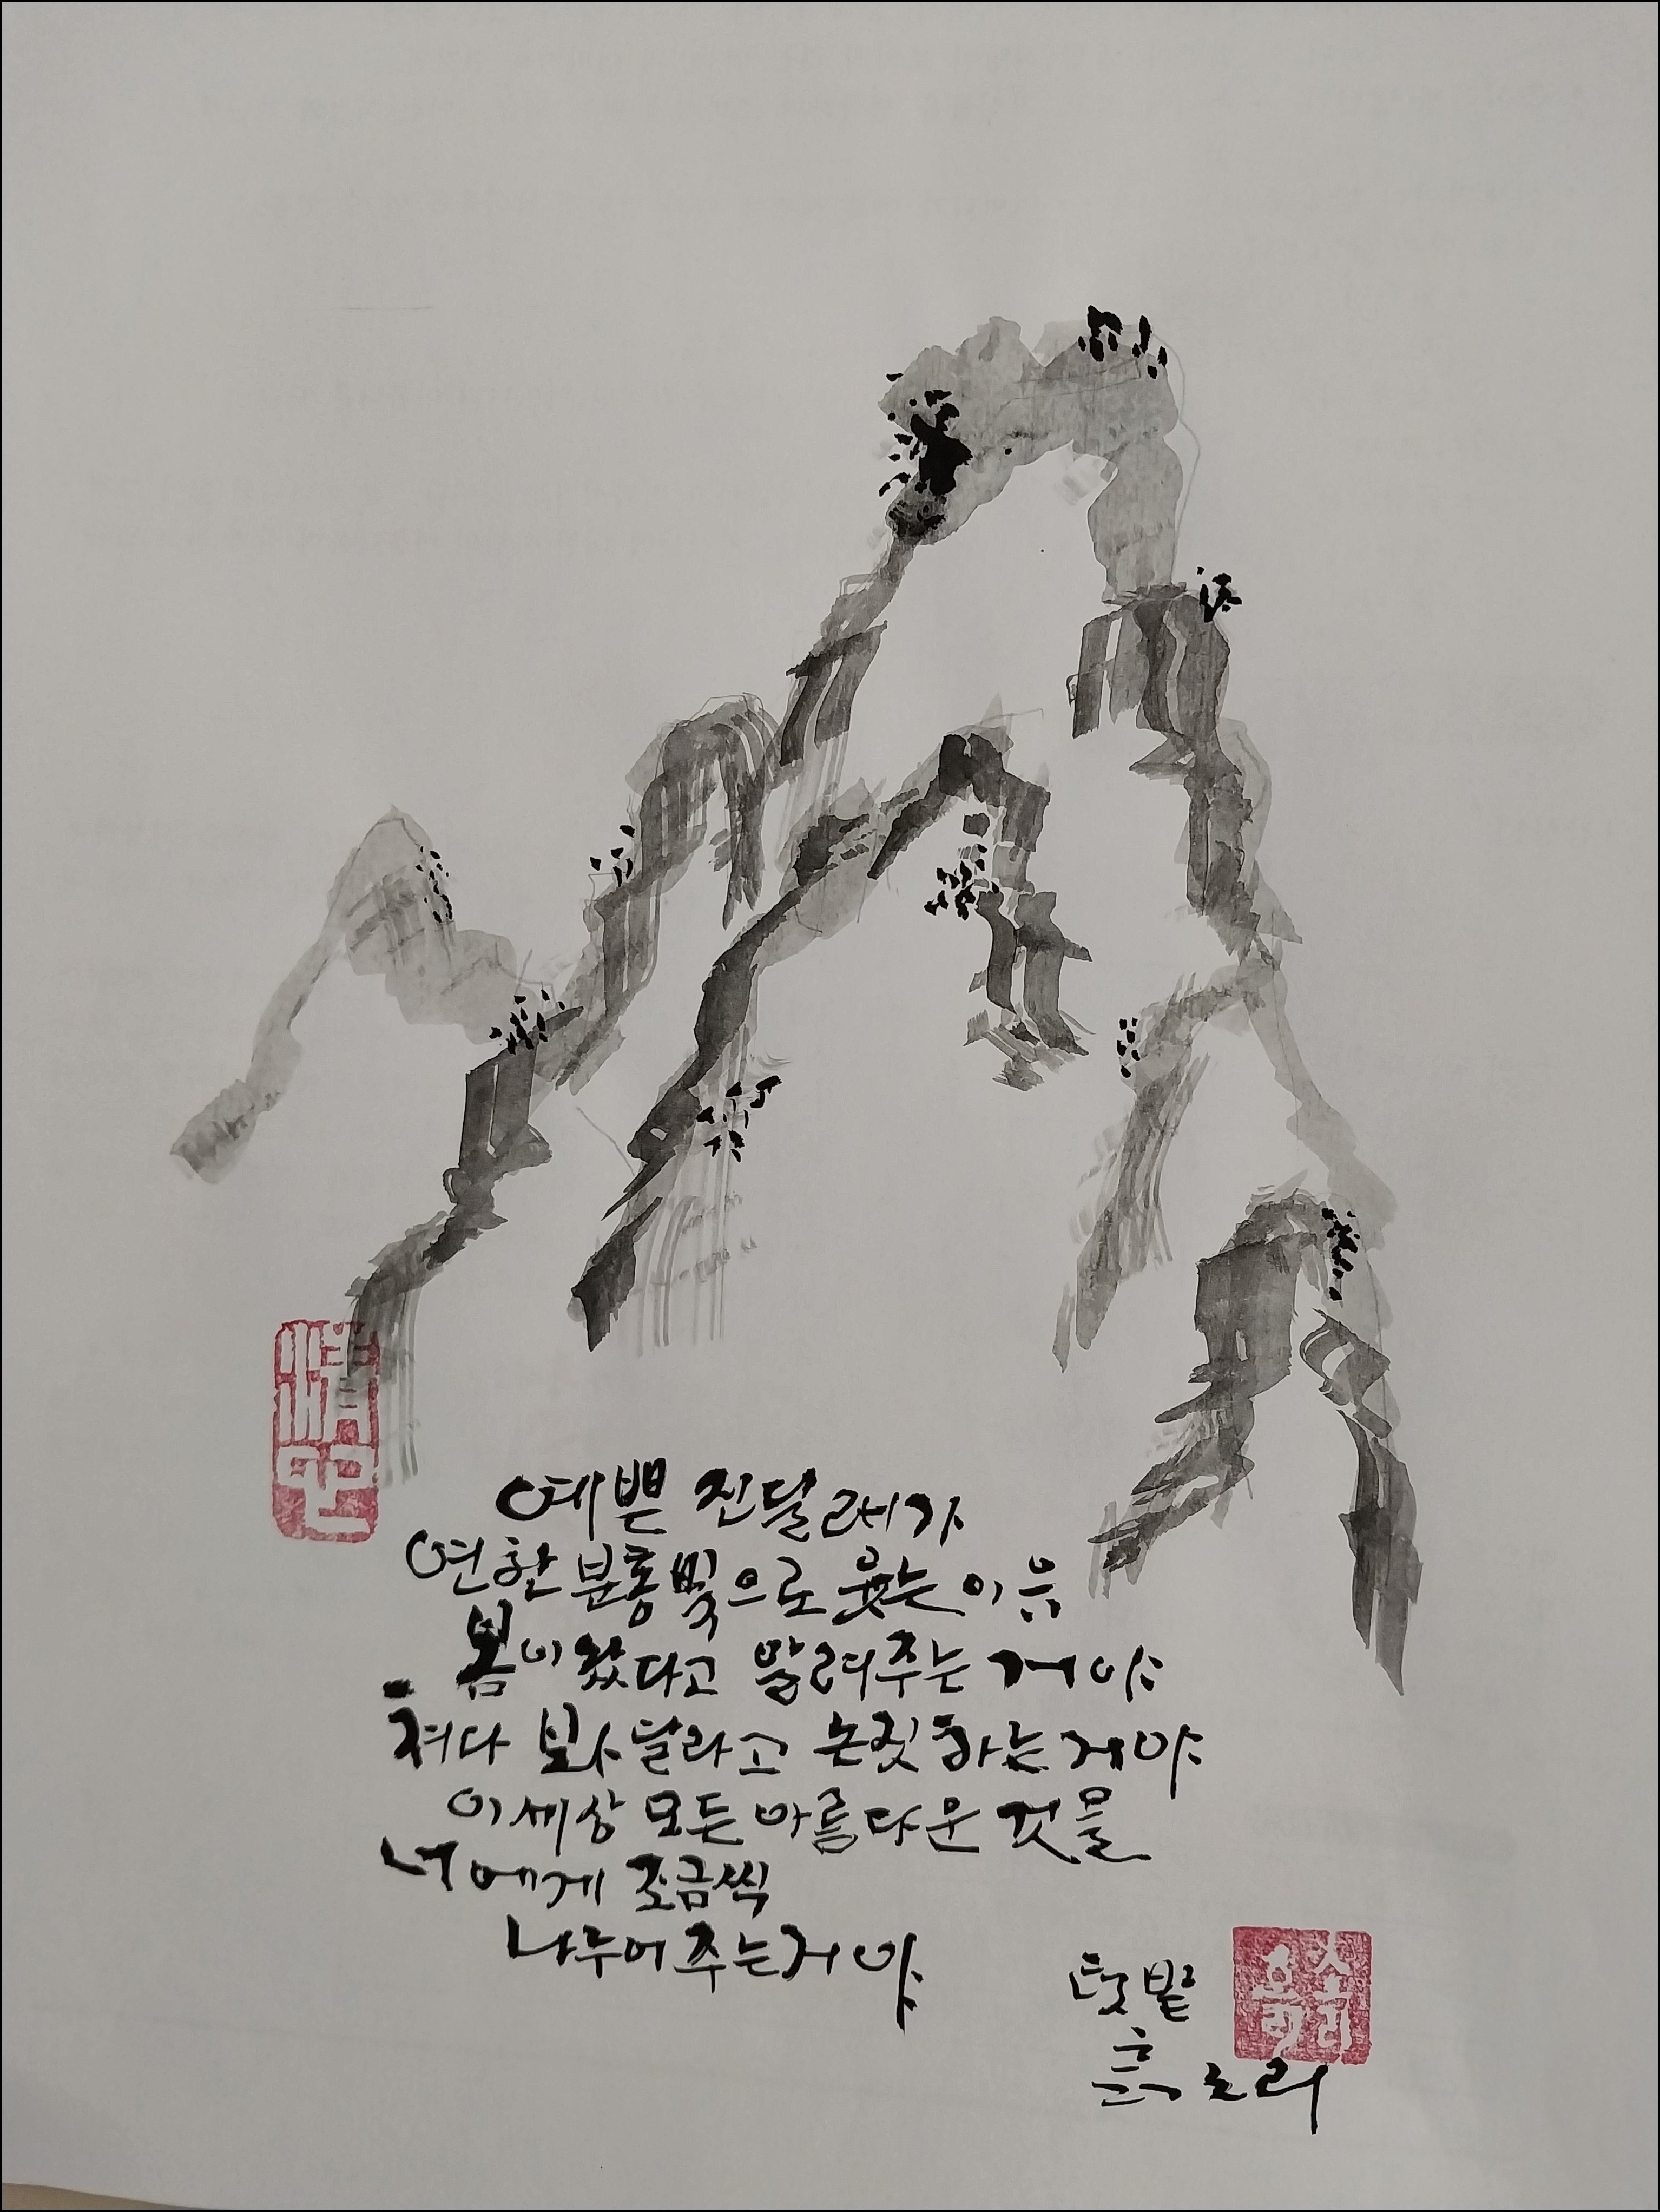 예쁜 진달래가
연한 분홍빛으로 웃는 이유
봄이 왔다고 알려주는 거야
쳐다 봐 달라고 눈짓 하는 거야
이 세상 모든 아름다운 것들
너에게 조금씩
나누어 주는 거야
텃밭
소리